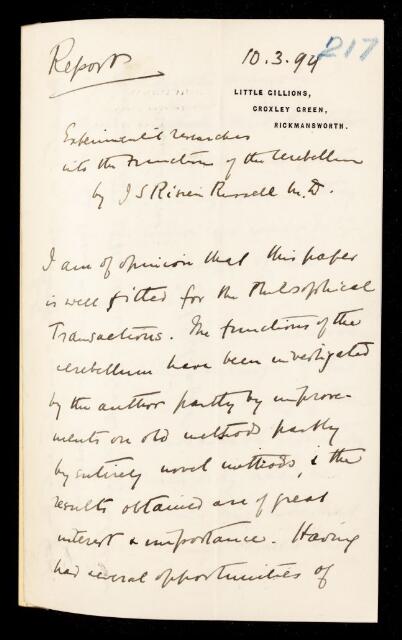 Report
10.3.94
217
LITTLE GILLIONS,
CROXLEY GREEN,
RICKMANSWORTH.
Experimental researches
into the Functions of the Cerebellum
by J S Risien Russell M.D.
I am of opinion that this paper
is well fitted for the Philosophical
Transactions. The functions of the
cerebellum have been investigated
by the author partly by improve-
ments on old methods partly
by entirely novel methods, & the
results obtained are of great
interest & importance. Having
had several opportunities of